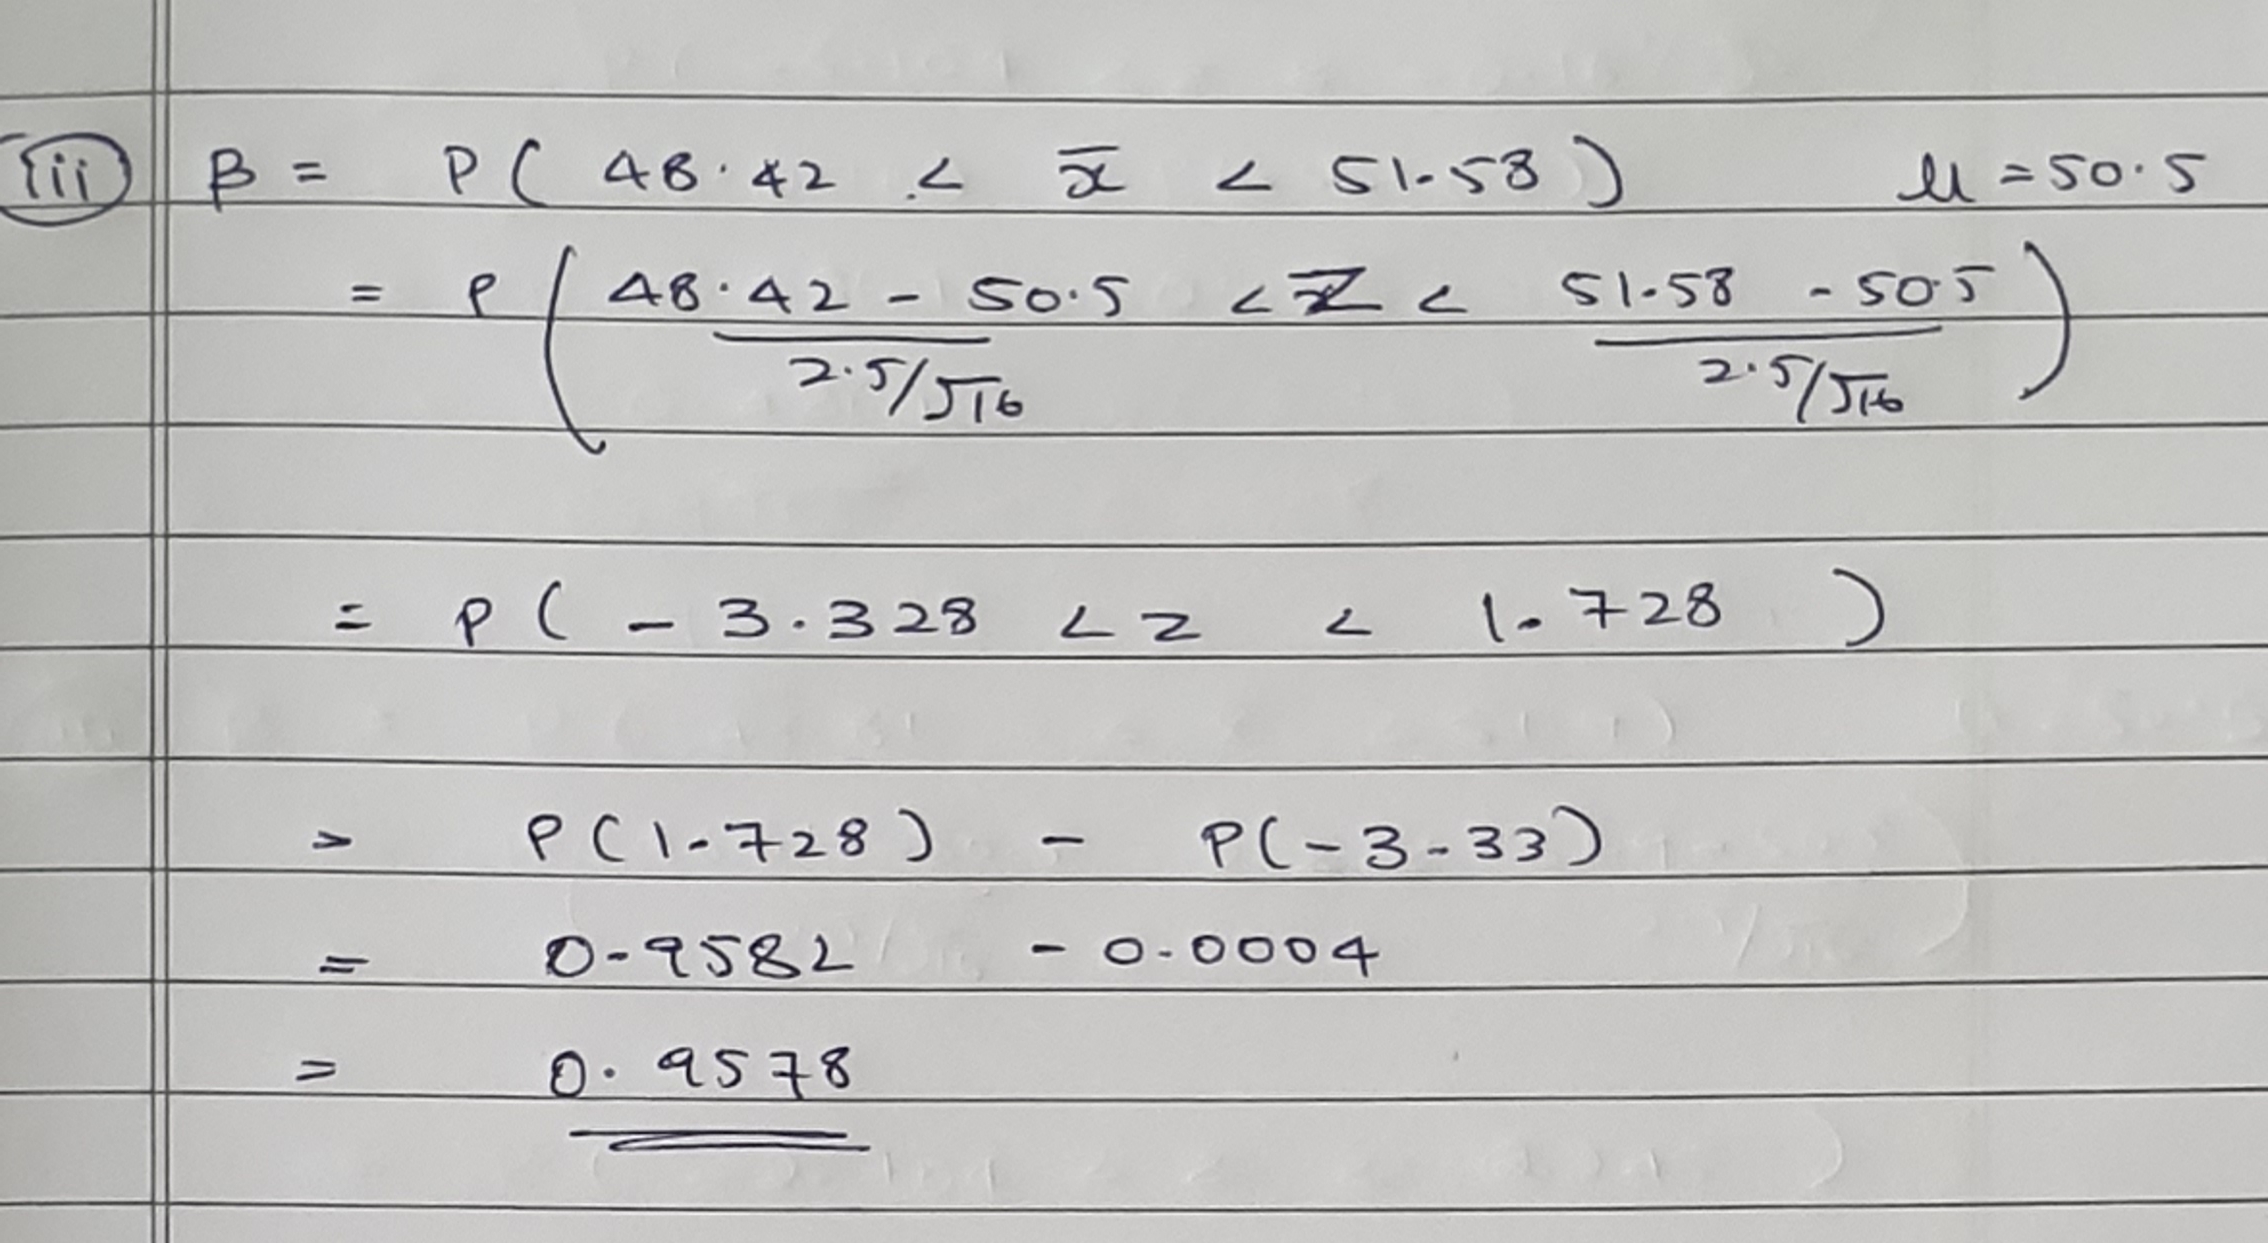 (iii) β = P( 48.42 < x̄ < 51.58 ) μ = 50.5
= P ( (48.42 - 50.5)/(2.5/√16) < Z < (51.58 - 50.5)/(2.5/√16) )
= P ( - 3.328 < z < 1.728 )
= P(1.728) - P(-3.33)
= 0.9582 - 0.0004
= 0.9578